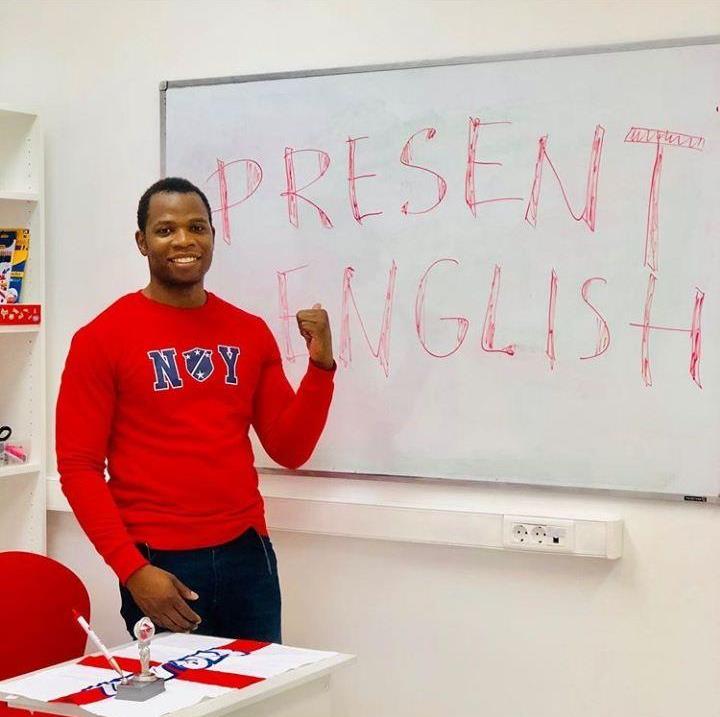 PRESENT
ENGLISH
N Y